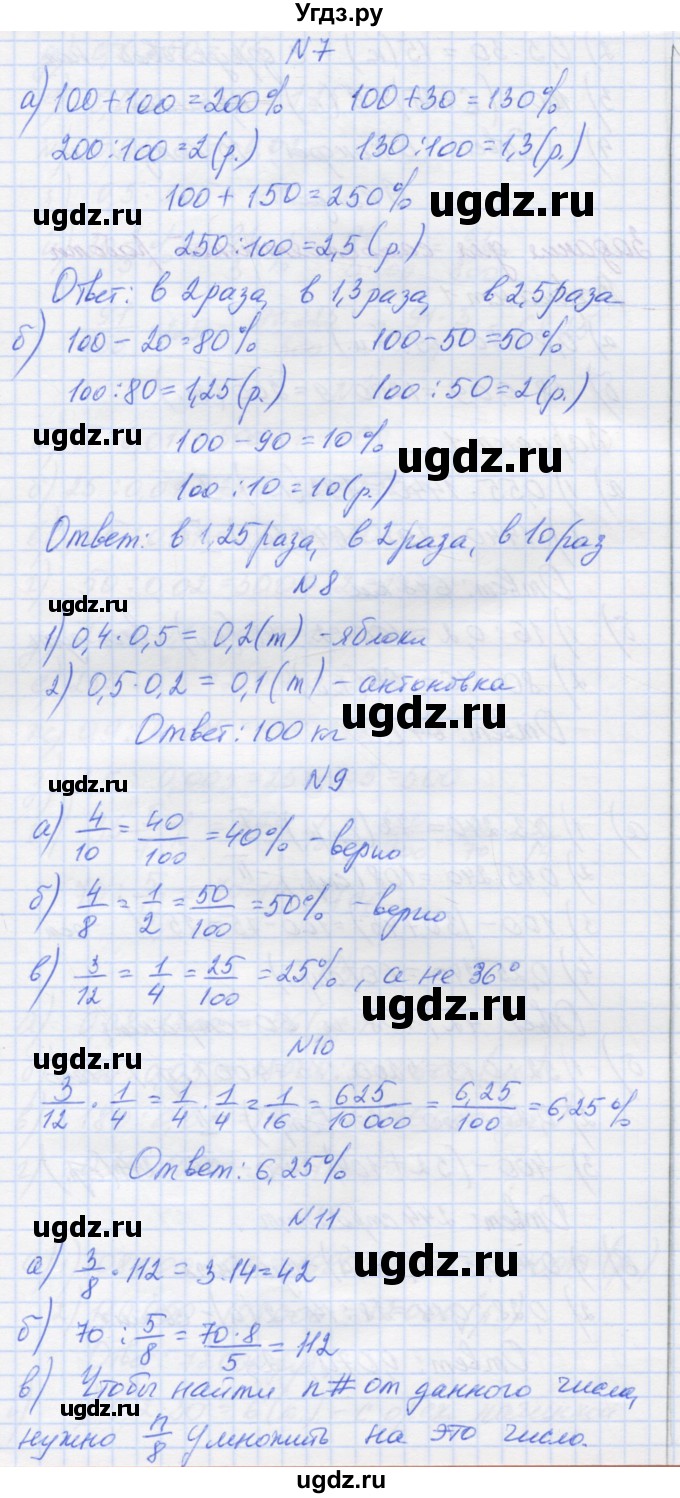 Угдз.ру
N7
а) 100+100=200% 100+30=130%
200:100=2(р.) 130:100=1,3(р.)
100+150=250%
ugdz.ru ugdz.ru
250:100=2,5(р.)
Ответ: в 2 раза, в 1,3 раза, в 2,5 раза
б) 100-20=80% 100-50=50%
100:80=1,25(р.) 100:50=2(р.)
ugdz.ru ugdz.ru
100-90=10%
100:10=10(р.)
Ответ: в 1,25 раза, в 2 раза, в 10 раз
N8
ugdz.ru
1) 0,4·0,5=0,2(т) - яблоки
2) 0,5·0,2=0,1(т) - антоновка
ugdz.ru
Ответ: 100 кг
N9
ugdz.ru
а) 4/10=40/100=40% - верно
ugdz.ru
б) 4/8=1/2=50/100=50% - верно
в) 3/12=1/4=25/100=25%, а не 36°
ugdz.ru
N10
ugdz.ru
3/12·1/4=1/4·1/4=1/16=625/10000=6,25/100=6,25%
Ответ: 6,25%
N11
ugdz.ru
а) 3/8·112=3·14=42
ugdz.ru
б) 70:5/8=70·8/5=112
в) Чтобы найти n# от данного числа,
ugdz.ru
нужно n/8 умножить на это число.
ugdz.ru